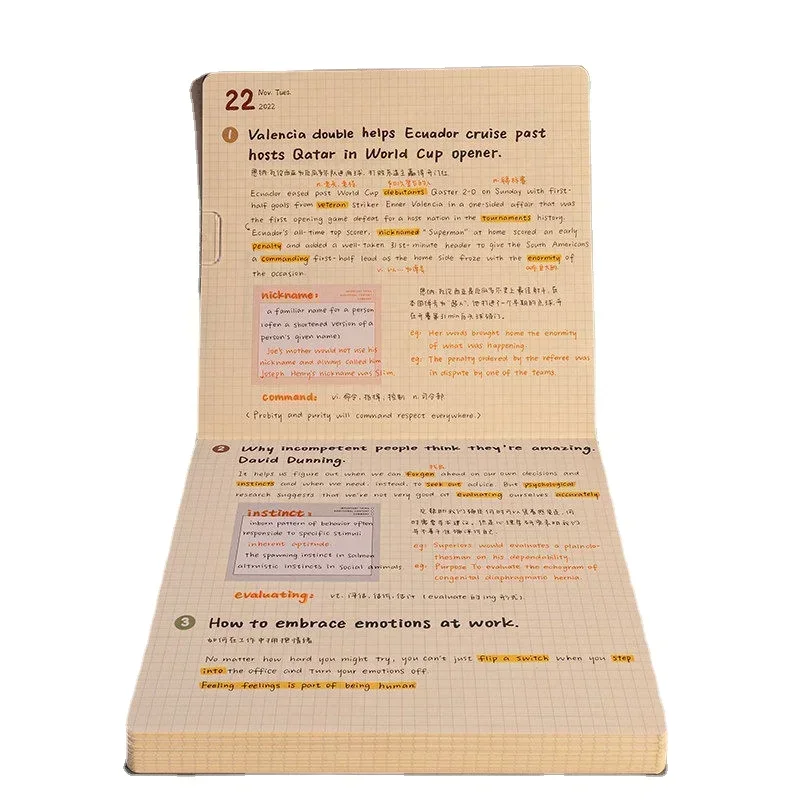 22 Nov. Tues.
2022
1 Valencia double helps Ecuador cruise past
hosts Qatar in World Cup opener.
Ecuador eased past World Cup debutants Qaster 2-0 on Sunday with first-
half goals from veteran striker Enner Valencia in a one-sided affair that was
the first opening game defeat for a host nation in the tournaments history.
Ecuador's all-time top scorer, nicknamed "Superman" at home scored an early
penalty and added a well-taken 31st-minute header to give the South Americans
a commanding first-half lead as the home side froze with the enormity of
the occasion.
nickname:
a familiar name for a person
(ofen a shortened version of a
person's given name)
Joe's mother would not use his
nickname and always called him
Joseph. Henry's nickname was Slim.
eg: Her words brought home the enormity
of what was happening.
eg: The penalty ordered by the referee was
in dispute by one of the teams.
command: vi. 命令, 指挥, 控制 n. 司令部
(Probity and purity will command respect everywhere.)
2 Why incompetent people think they're amazing.
David Dunning.
It helps us figure out when we can forgen ahead on our own decisions and
instincts and when we need, instead, to seek out advice. But psychological
research suggests that we're not very good at evaluating ourselves accurately
instinct:
inborn pattern of behavior often
responside to specific stimuli
inherent aptitude.
The spawning instinct in salmon
altruistic instincts in social animals
eg: Superiors would evaluates a plainclo-
thesman on his dependability.
eg: Purpose To evaluate the echogram of
congenital diaphragmatic hernia.
evaluating: vt. 评估, 估价, 估计 (evaluate 的 ing 形式).
3 How to embrace emotions at work.
如何在工作中拥抱情绪
No matter how hard you might try, you can't just flip a switch when you step
into the office and turn your emotions off.
Feeling feelings is part of being human